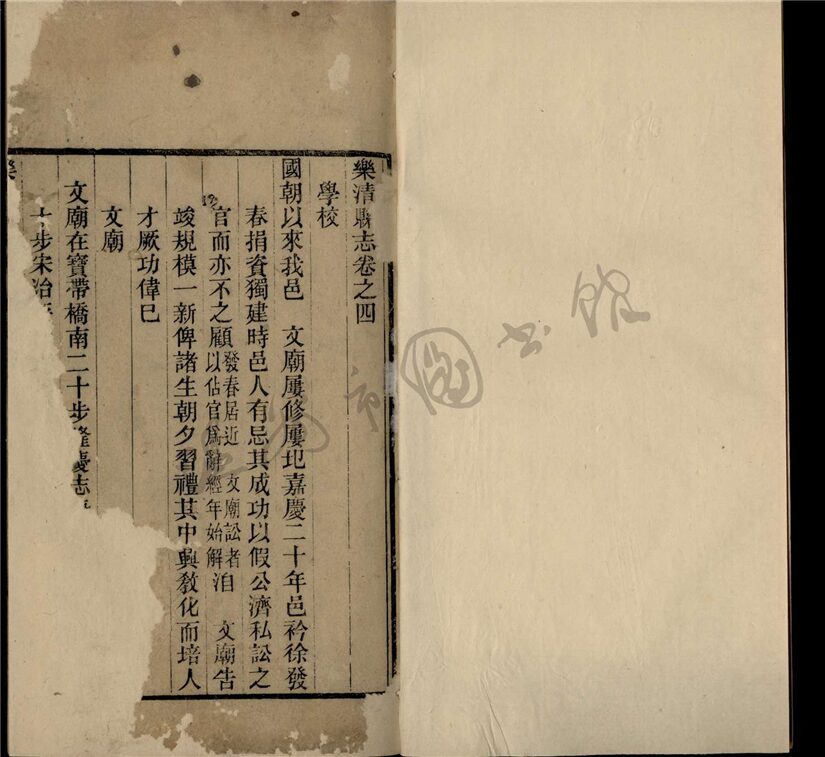 樂清縣志卷之四
學校
國朝以來我邑　文廟屢修屢圮嘉慶二十年邑衿徐發
春捐資獨建時邑人有忌其成功以假公濟私訟之
官而亦不之顧發春居近　文廟訟者以佔官爲辭經年始解洎　文廟告
竣規模一新俾諸生朝夕習禮其中興敎化而培人
才厥功偉已
文廟
文廟在寶帶橋南二十步隆慶志
十步宋治
樂
市圖書館